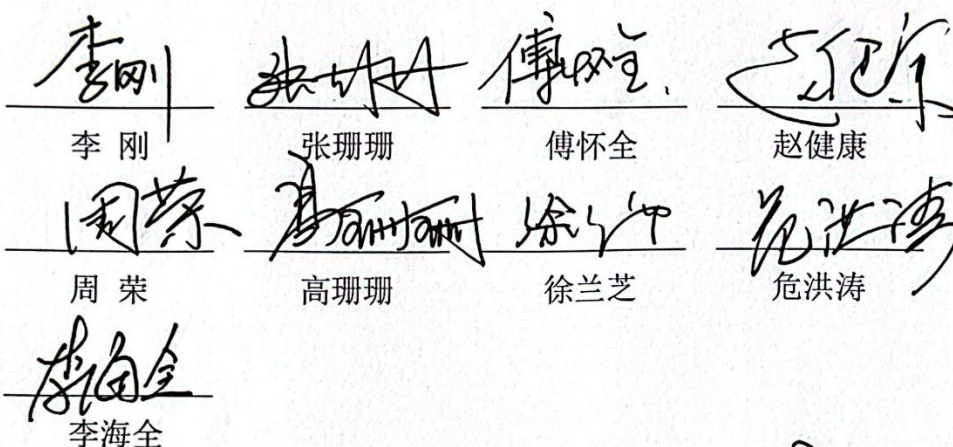 李刚 张珊珊 傅怀全 赵健康
李 刚 张珊珊 傅怀全 赵健康
周荣 高珊珊 徐兰芝 危洪涛
周 荣 高珊珊 徐兰芝 危洪涛
李海全
李海全